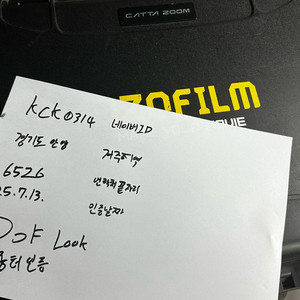 CATTA ZOOM
ZOFILM
KCK0314 네이버ID
경기도 안양 거주지역
6526 번호끝자리
25.7.13. 인증날짜
DOF Look